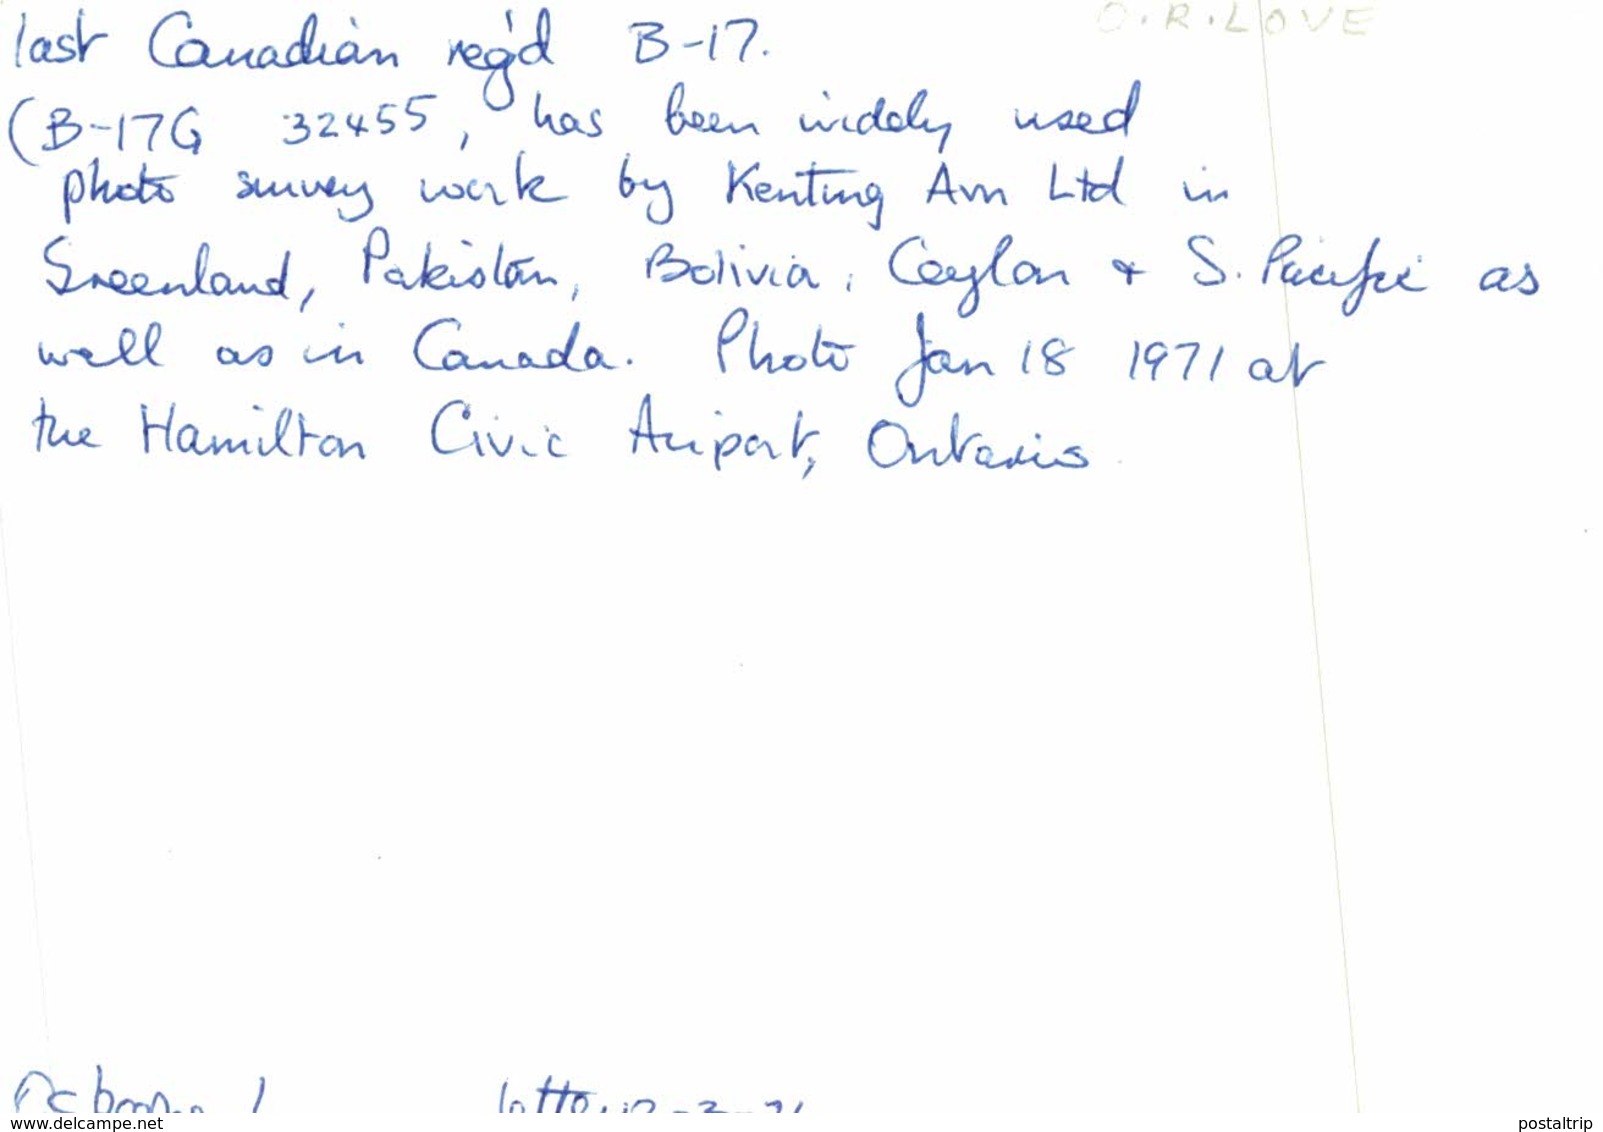 O.R.LOVE
last Canadian reg'd B-17.
(B-17G 32455, has been widely used
photo survey work by Kenting Avn Ltd in
Greenland, Pakistan, Bolivia, Ceylon + S. Pacific as
well as in Canada. Photo Jan 18 1971 at
the Hamilton Civic Airport, Ontario
www.delcampe.net
postaltrip